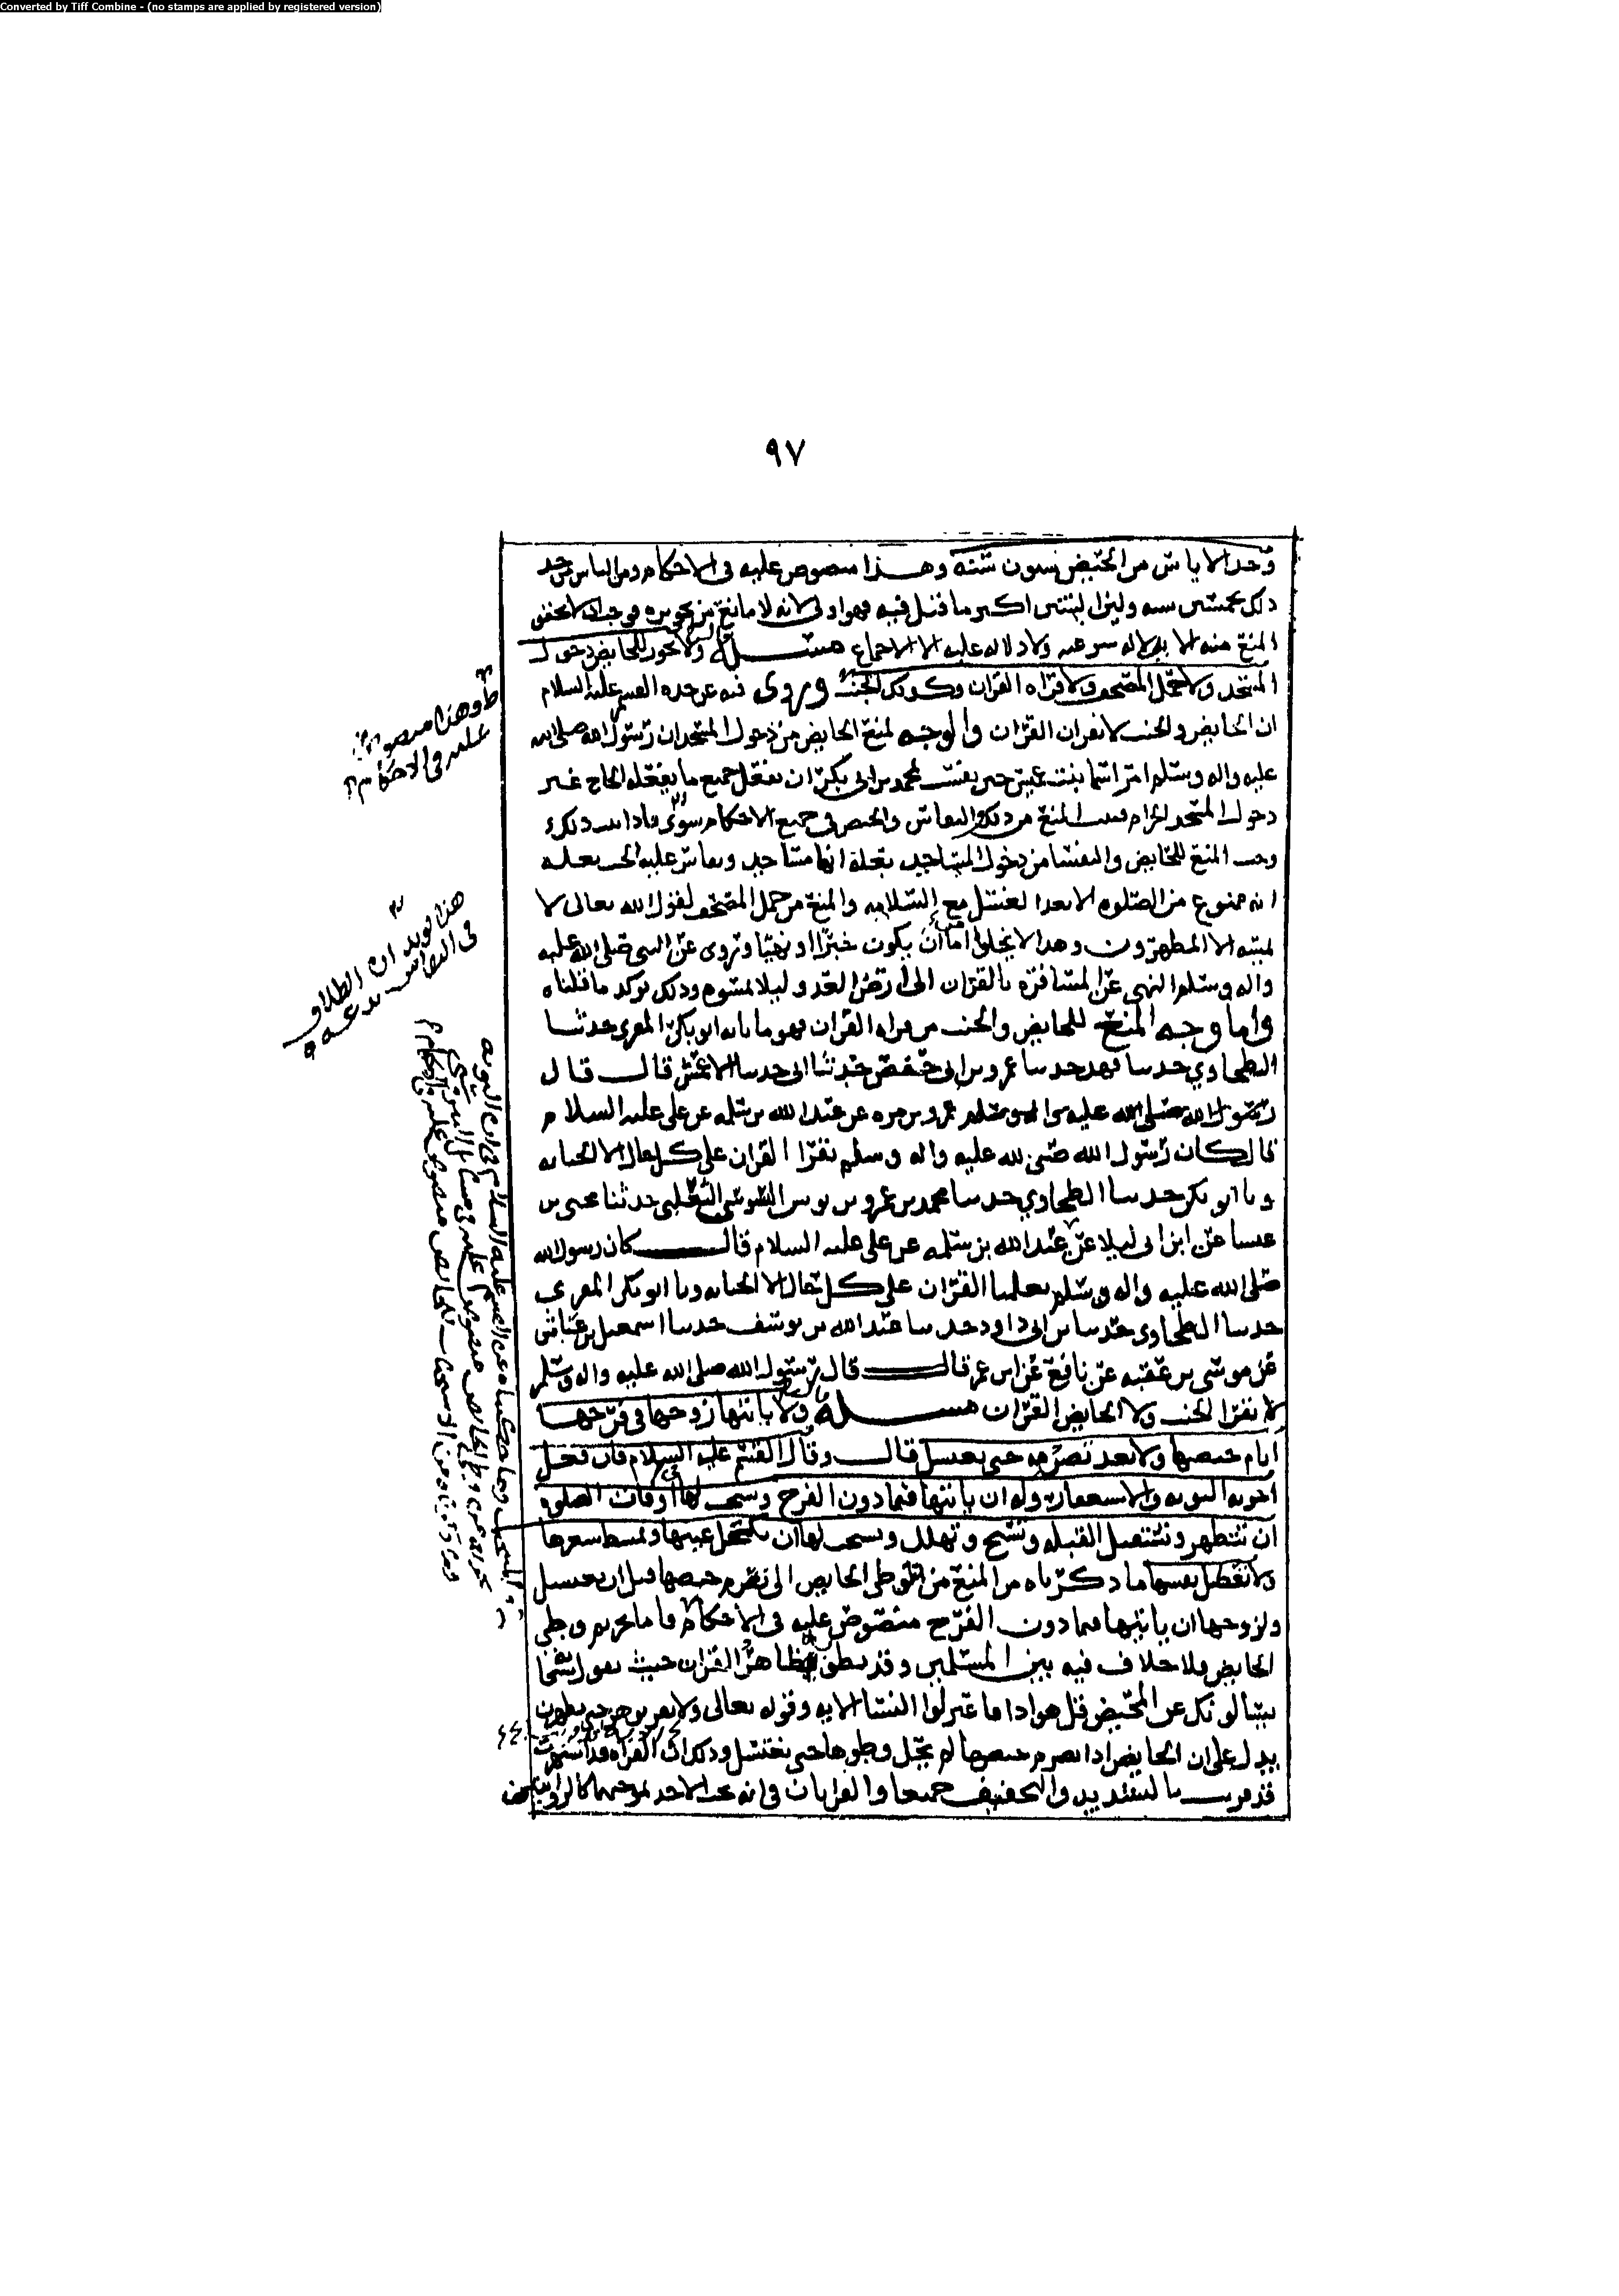 Converted by Tiff Combine - (no stamps are applied by registered version)
٩٧
وحد الاياس من الحيض ستون سنة وهذا منصوص عليه في الاحكام ومن الناس من حد
ذلك بخمسين سنه اكبر ما قيل فيه فهو اولى لانه لا مانع من تجويزه
المنع منه الا بدلاله شرعيه ولا دلاله عليه الا الاجماع مسئلة ولا يجوز للحايض دخول
المسجد ولا حمل المصحف ولا قراه القران وكذلك الجنب وروى فيه عن جده القسم عليه السلام
ان الحايض والجنب لا يقران القران والوجه لمنع الحايض من دخول المسجد ان رسول الله صلى الله
عليه واله وسلم امر اسما بنت عميس حين نفست بمحمد بن ابي بكر ان تفعل جميع ما يفعله الحاج غير
دخول المسجد الحرام فثبت المنع من ذلك والنفاس والحيض في جميع الاحكام سوى فاذا ثبت ذلك
وجب المنع للحايض والنفسا من دخول المساجد بعلة انها مساجد ويقاس عليه الجنب بعلة
انه ممنوع من الصلوه الا بعد الغسل مع السلامه والمنع من حمل المصحف لقول الله تعالى لا
يمسه الا المطهرون وهذا لا يخلوا اما ان يكون خبرًا او نهيًا وتروى عن النبي صلى الله عليه
واله وسلم النهي عن المسافرة بالقران الى ارض العدو ليلا يمسوه وذلك يوكد ما قلناه
واما وجه المنع للحايض والجنب من قراه القران فهو ما ابو بكر المقري حدثنا
الطحاوي حدثنا فهد حدثنا عمر بن ابي حفص حدثنا ابي حدثنا الاعمش قال قال
رسول الله صلى الله عليه عمرو بن مره عن عبد الله بن سلمه عن علي عليه السلام
قال كان رسول الله صلى الله عليه واله وسلم يقرا القران على كل حال الا الجنابه
ونا ابو بكر حدثنا الطحاوي حدثنا محمد بن عمرو بن يونس السوسي الثعلبي حدثنا يحيى بن
عيسا عن ابن ابي ليلا عن عبد الله بن سلمه عن علي عليه السلام قال كان رسول الله
صلى الله عليه واله وسلم يعلمنا القران على كل حال الا الجنابه ونا ابو بكر المقري
حدثنا الطحاوي حدثنا بن ابي داود حدثنا عبد الله بن يوسف حدثنا اسمعيل بن عياش
عن موسى بن عقبه عن نافع عن ابن عمر قال قال رسول الله صلى الله عليه واله وسلم
لا يقرا الجنب ولا الحايض القران مسئلة ولا ياتيها زوجها في فرجها
ايام حيضها ولا بعد تصرمه حتى تغتسل قال وقال القسم عليه السلام فان فعل
اجزته التوبه والاستغفار وله ان ياتيها فيما دون الفرج ويستحب لها في اوقات الصلوه
ان تتطهر وتستقبل القبله وتسبح وتهلل ويستحب لها ان تكتحل عينها وتمشط شعرها
ولا تعطل نفسها ما ذكرناه من المنع من وطي الحايض الى تصرم حيضها قبل ان تغتسل
ولزوجها ان ياتيها فيما دون الفرج منصوص عليه في الاحكام فاما تحريم وطي
الحايض فلا خلاف فيه بين المسلمين وقد نطق به ظاهر القران حيث يقول
يسالونك عن المحيض قل هو اذا فاعتزلوا النسا الايه وقوله تعالى ولا تقربوهن حتى يطهرن
يدل على ان الحايض اذا تصرم حيضها لم يحل وطوها حتى تغتسل وذلك ان القراه قد
قد قريت بالتشديد والتخفيف جميعا والقرايات في انه يجب الاخذ بموجبهما كالروايتين
ط وهذا منصوص
عليه في الاحكام
هذا يويد ان الطلاق
في النفاس بدعه